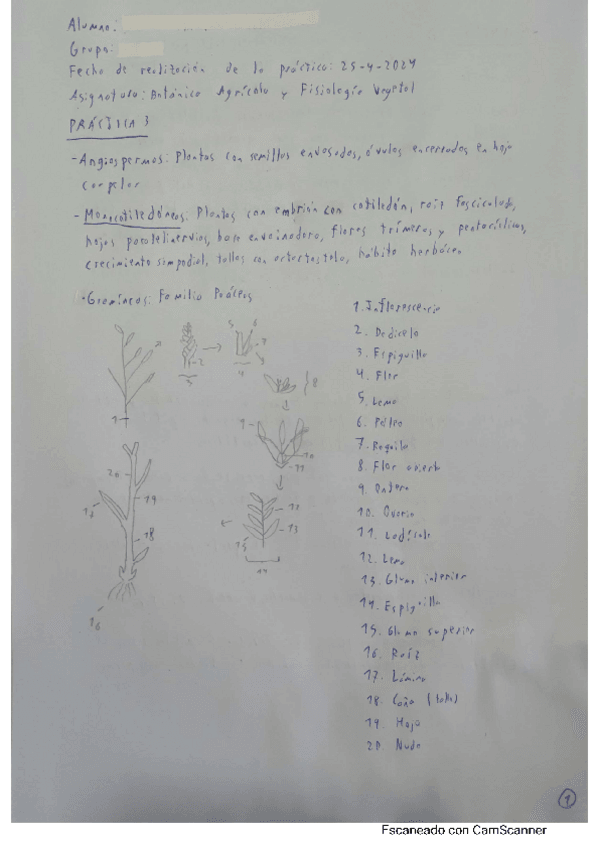 Alumno:
Grupo:
Fecha de realización de la práctica: 25-4-2024
Asignatura: Botánica Agrícola y Fisiología Vegetal
PRÁCTICA 3
-Angiospermas: Plantas con semillas envasadas, óvulos encerrados en hoja
carpelar
- Monocotiledóneas: Plantas con embrión con cotiledón, raiz fasciculada,
hojas paralelinervias, base envainadora, flores trímeras y pentacíclicas,
crecimiento simpodial, tallos con actactostela, hábito herbáceo.
· Gramíneas: Familia Poáceas
1. Inflorescencia
2. Pedicelo
3. Espiguilla
4. Flor
5. Lema
6. Pálea
7. Raquilla
8. Flor abierta
9. Antera
10. Ovario
11. Lodícula
12. Lema
13. Gluma inferior
14. Espiguilla
15. Gluma superior
16. Raíz
17. Lámina
18. Caña (tallo)
19. Hoja
20 Nudo
1
2
3
5
6
7
4
8
9
10
11
12
13
15
14
20
19
17
18
16
1
Escaneado con CamScanner